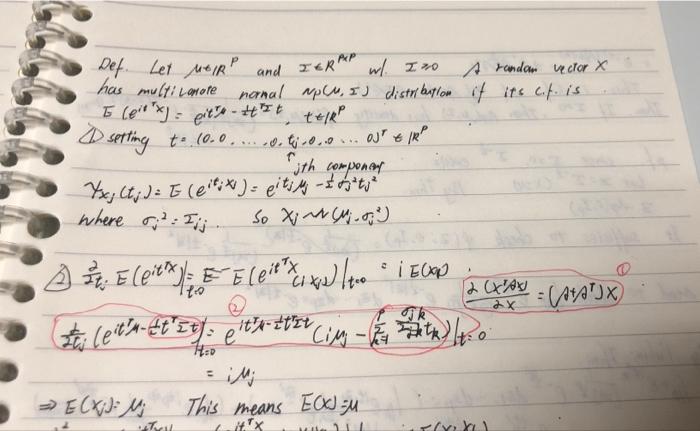 Def. Let μ∈ℝ^p and Σ∈ℝ^{p×p} w/. Σ≥0 A random vector X
has multivariate normal N_p(μ, Σ) distribution if its c.f. is
E(e^{it^T X}) = e^{it^T μ - ½t^T Σ t} t∈ℝ^p
① setting t = (0.0. ....., 0, t_j, 0, 0 ... 0)^T ∈ ℝ^p
↑
jth component
γ_{X_j}(t_j) = E(e^{it_j X_j}) = e^{it_j μ_j - ½σ_j² t_j²}
where σ_j² = Σ_{jj}. So X_j ~ N(μ_j, σ_j²)
② ∂/∂t_j E(e^{it^T X})|_{t=0} = E(e^{it^T X}(iX_j))|_{t=0} = iE(X_j)
①
∂(X^T A X)/∂X = (A+A^T)X
②
∂/∂t_j (e^{it^T μ - ½t^T Σ t})|_{t=0} = e^{it^T μ - ½t^T Σ t}(iμ_j - Σ_{k=1}^p σ_{jk} t_k)|_{t=0}
= iμ_j
⇒ E(X_j) = μ_j This means E(X) = μ